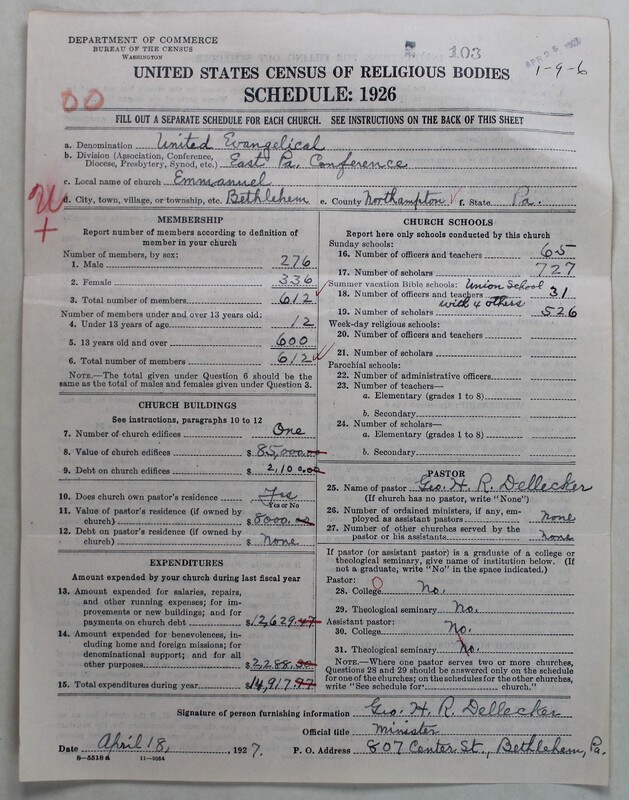 DEPARTMENT OF COMMERCE
BUREAU OF THE CENSUS
WASHINGTON
103
1-9-6
UNITED STATES CENSUS OF RELIGIOUS BODIES
SCHEDULE: 1926
00
FILL OUT A SEPARATE SCHEDULE FOR EACH CHURCH. SEE INSTRUCTIONS ON THE BACK OF THIS SHEET
a. Denomination United Evangelical
b. Division (Association, Conference, Diocese, Presbytery, Synod, etc.) East Pa. Conference
c. Local name of church Emmanuel
d. City, town, village, or township, etc. Bethlehem e. County Northampton f. State Pa.
MEMBERSHIP
Report number of members according to definition of
member in your church
Number of members, by sex:
1. Male 276
2. Female 336
3. Total number of members 612
Number of members under and over 13 years old:
4. Under 13 years of age 12
5. 13 years old and over 600
6. Total number of members 612
NOTE.—The total given under Question 6 should be the
same as the total of males and females given under Question 3.
CHURCH BUILDINGS
See instructions, paragraphs 10 to 12
7. Number of church edifices One
8. Value of church edifices $ 85,000.00
9. Debt on church edifices $ 2,100.00
10. Does church own pastor's residence Yes
Yes or No
11. Value of pastor's residence (if owned by
church) $ 8000.00
12. Debt on pastor's residence (if owned by
church) $ None
EXPENDITURES
Amount expended by your church during last fiscal year
13. Amount expended for salaries, repairs,
and other running expenses; for im-
provements or new buildings; and for
payments on church debt $ 12,629.47
14. Amount expended for benevolences,
including home and foreign missions; for
denominational support; and for all
other purposes $ 2,288.50
15. Total expenditures during year $ 14,917.97
CHURCH SCHOOLS
Report here only schools conducted by this church
Sunday schools:
16. Number of officers and teachers 65
17. Number of scholars 727
Summer vacation Bible schools: Union School
18. Number of officers and teachers 31
with 4 others
19. Number of scholars 526
Week-day religious schools:
20. Number of officers and teachers
21. Number of scholars
Parochial schools:
22. Number of administrative officers
23. Number of teachers—
a. Elementary (grades 1 to 8)
b. Secondary
24. Number of scholars—
a. Elementary (grades 1 to 8)
b. Secondary
PASTOR
25. Name of pastor Geo. H. R. Dellecker
(If church has no pastor, write "None")
26. Number of ordained ministers, if any, em-
ployed as assistant pastors None
27. Number of other churches served by the
pastor or his assistants None
If pastor (or assistant pastor) is a graduate of a college or
theological seminary, give name of institution below. (If
not a graduate, write "No" in the space indicated.)
Pastor:
28. College No.
29. Theological seminary No.
Assistant pastor:
30. College No.
31. Theological seminary No.
NOTE.—Where one pastor serves two or more churches,
Questions 28 and 29 should be answered only on the schedule
for one of the churches; on the schedules for the other churches,
write "See schedule for church."
Signature of person furnishing information Geo. H. R. Dellecker
Official title Minister
Date April 18, 1927. P. O. Address 807 Center St., Bethlehem, Pa.
8—5518a 11—9054